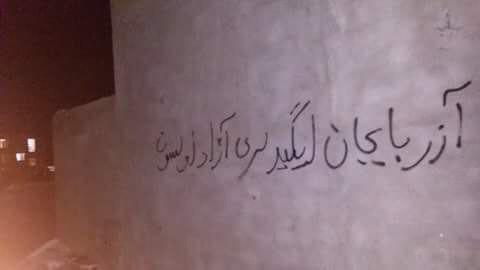 آزربایجان ایگیدلری آزاد اولسون